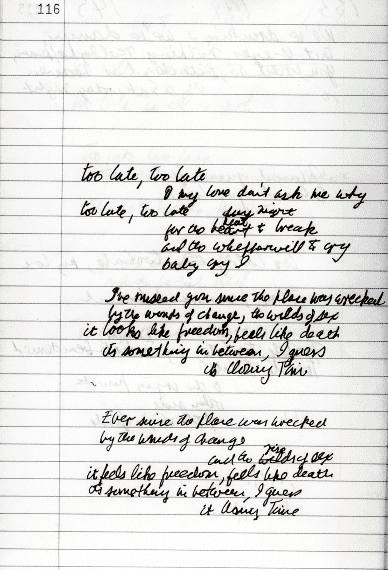 116
too late, too late
O my love don't ask me why
too late, too late
night
for the heart to break
and the whipporwill to cry
baby cry
I've missed you since the place was wrecked
by the winds of change, the wilds of sex
it looks like freedom, feels like death
it's something in between, I guess
its Closing Time
Ever since the place was wrecked
by the winds of change
rise
and the wilds of sex
it feels like freedom, feels like death
its something in between, I guess
it Closing Time